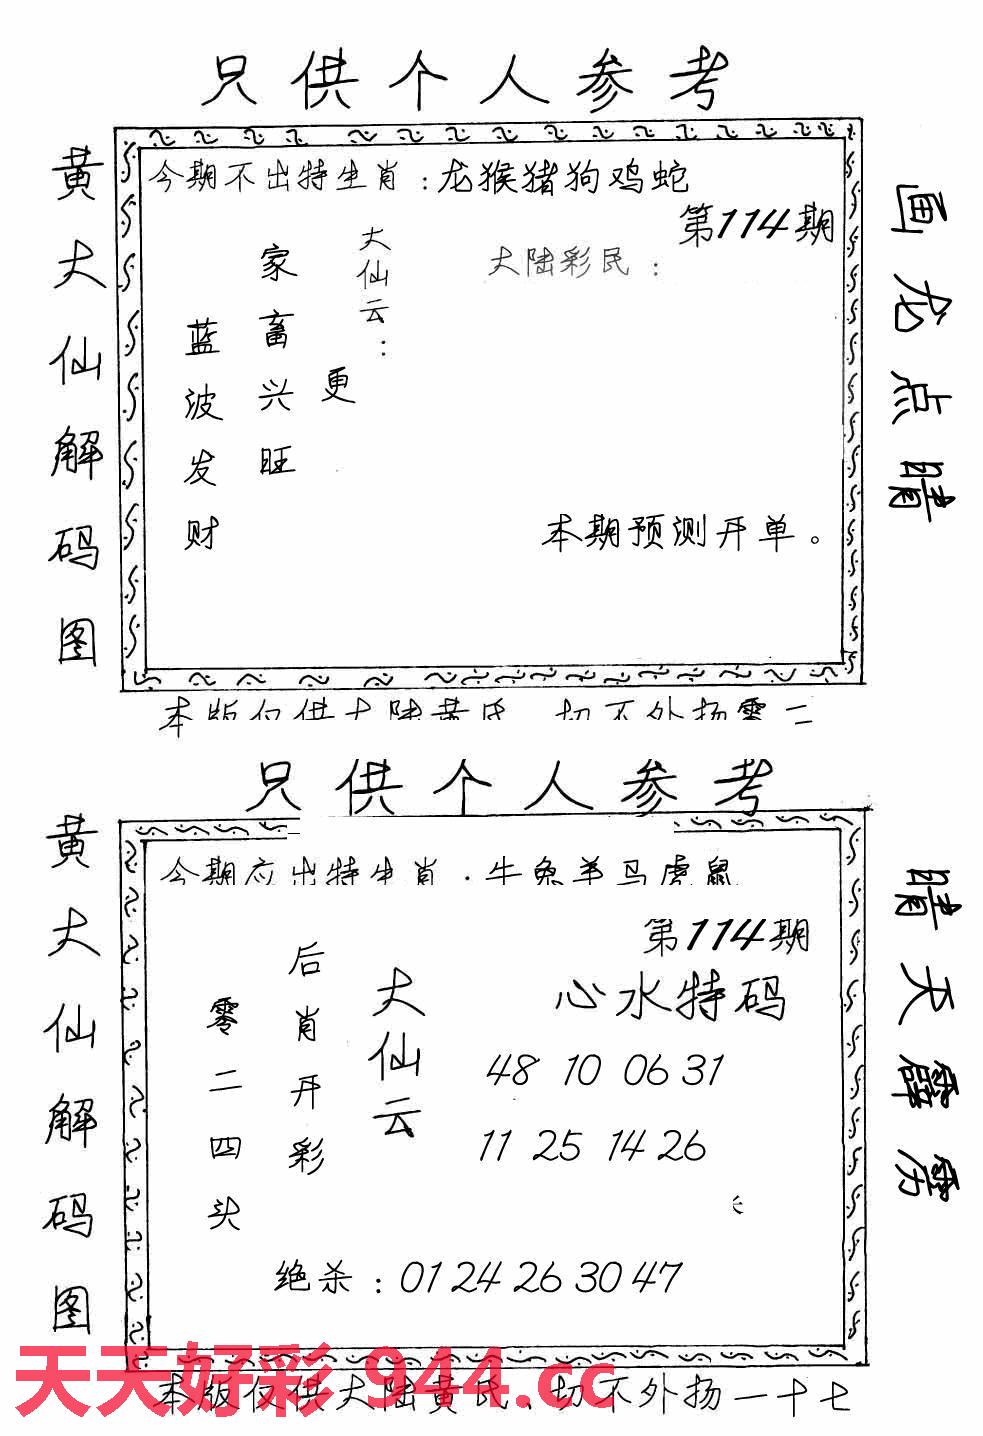 只供个人参考
黄大仙解码图
今期不出特生肖：龙猴猪狗鸡蛇
第114期
大陆彩民：
大仙云：
更
家畜兴旺
蓝波发财
本期预测开单。
画龙点睛
本版仅供大陆黄氏、切不外扬零二
只供个人参考
黄大仙解码图
今期应出特生肖：牛兔羊马虎鼠
第114期
心水特码
48 10 06 31
11 25 14 26
大仙云
后肖开彩
零二四头
绝杀：01 24 26 30 47
晴天霹雳
天天好彩 944.cc
本版仅供大陆黄氏、切不外扬一十七